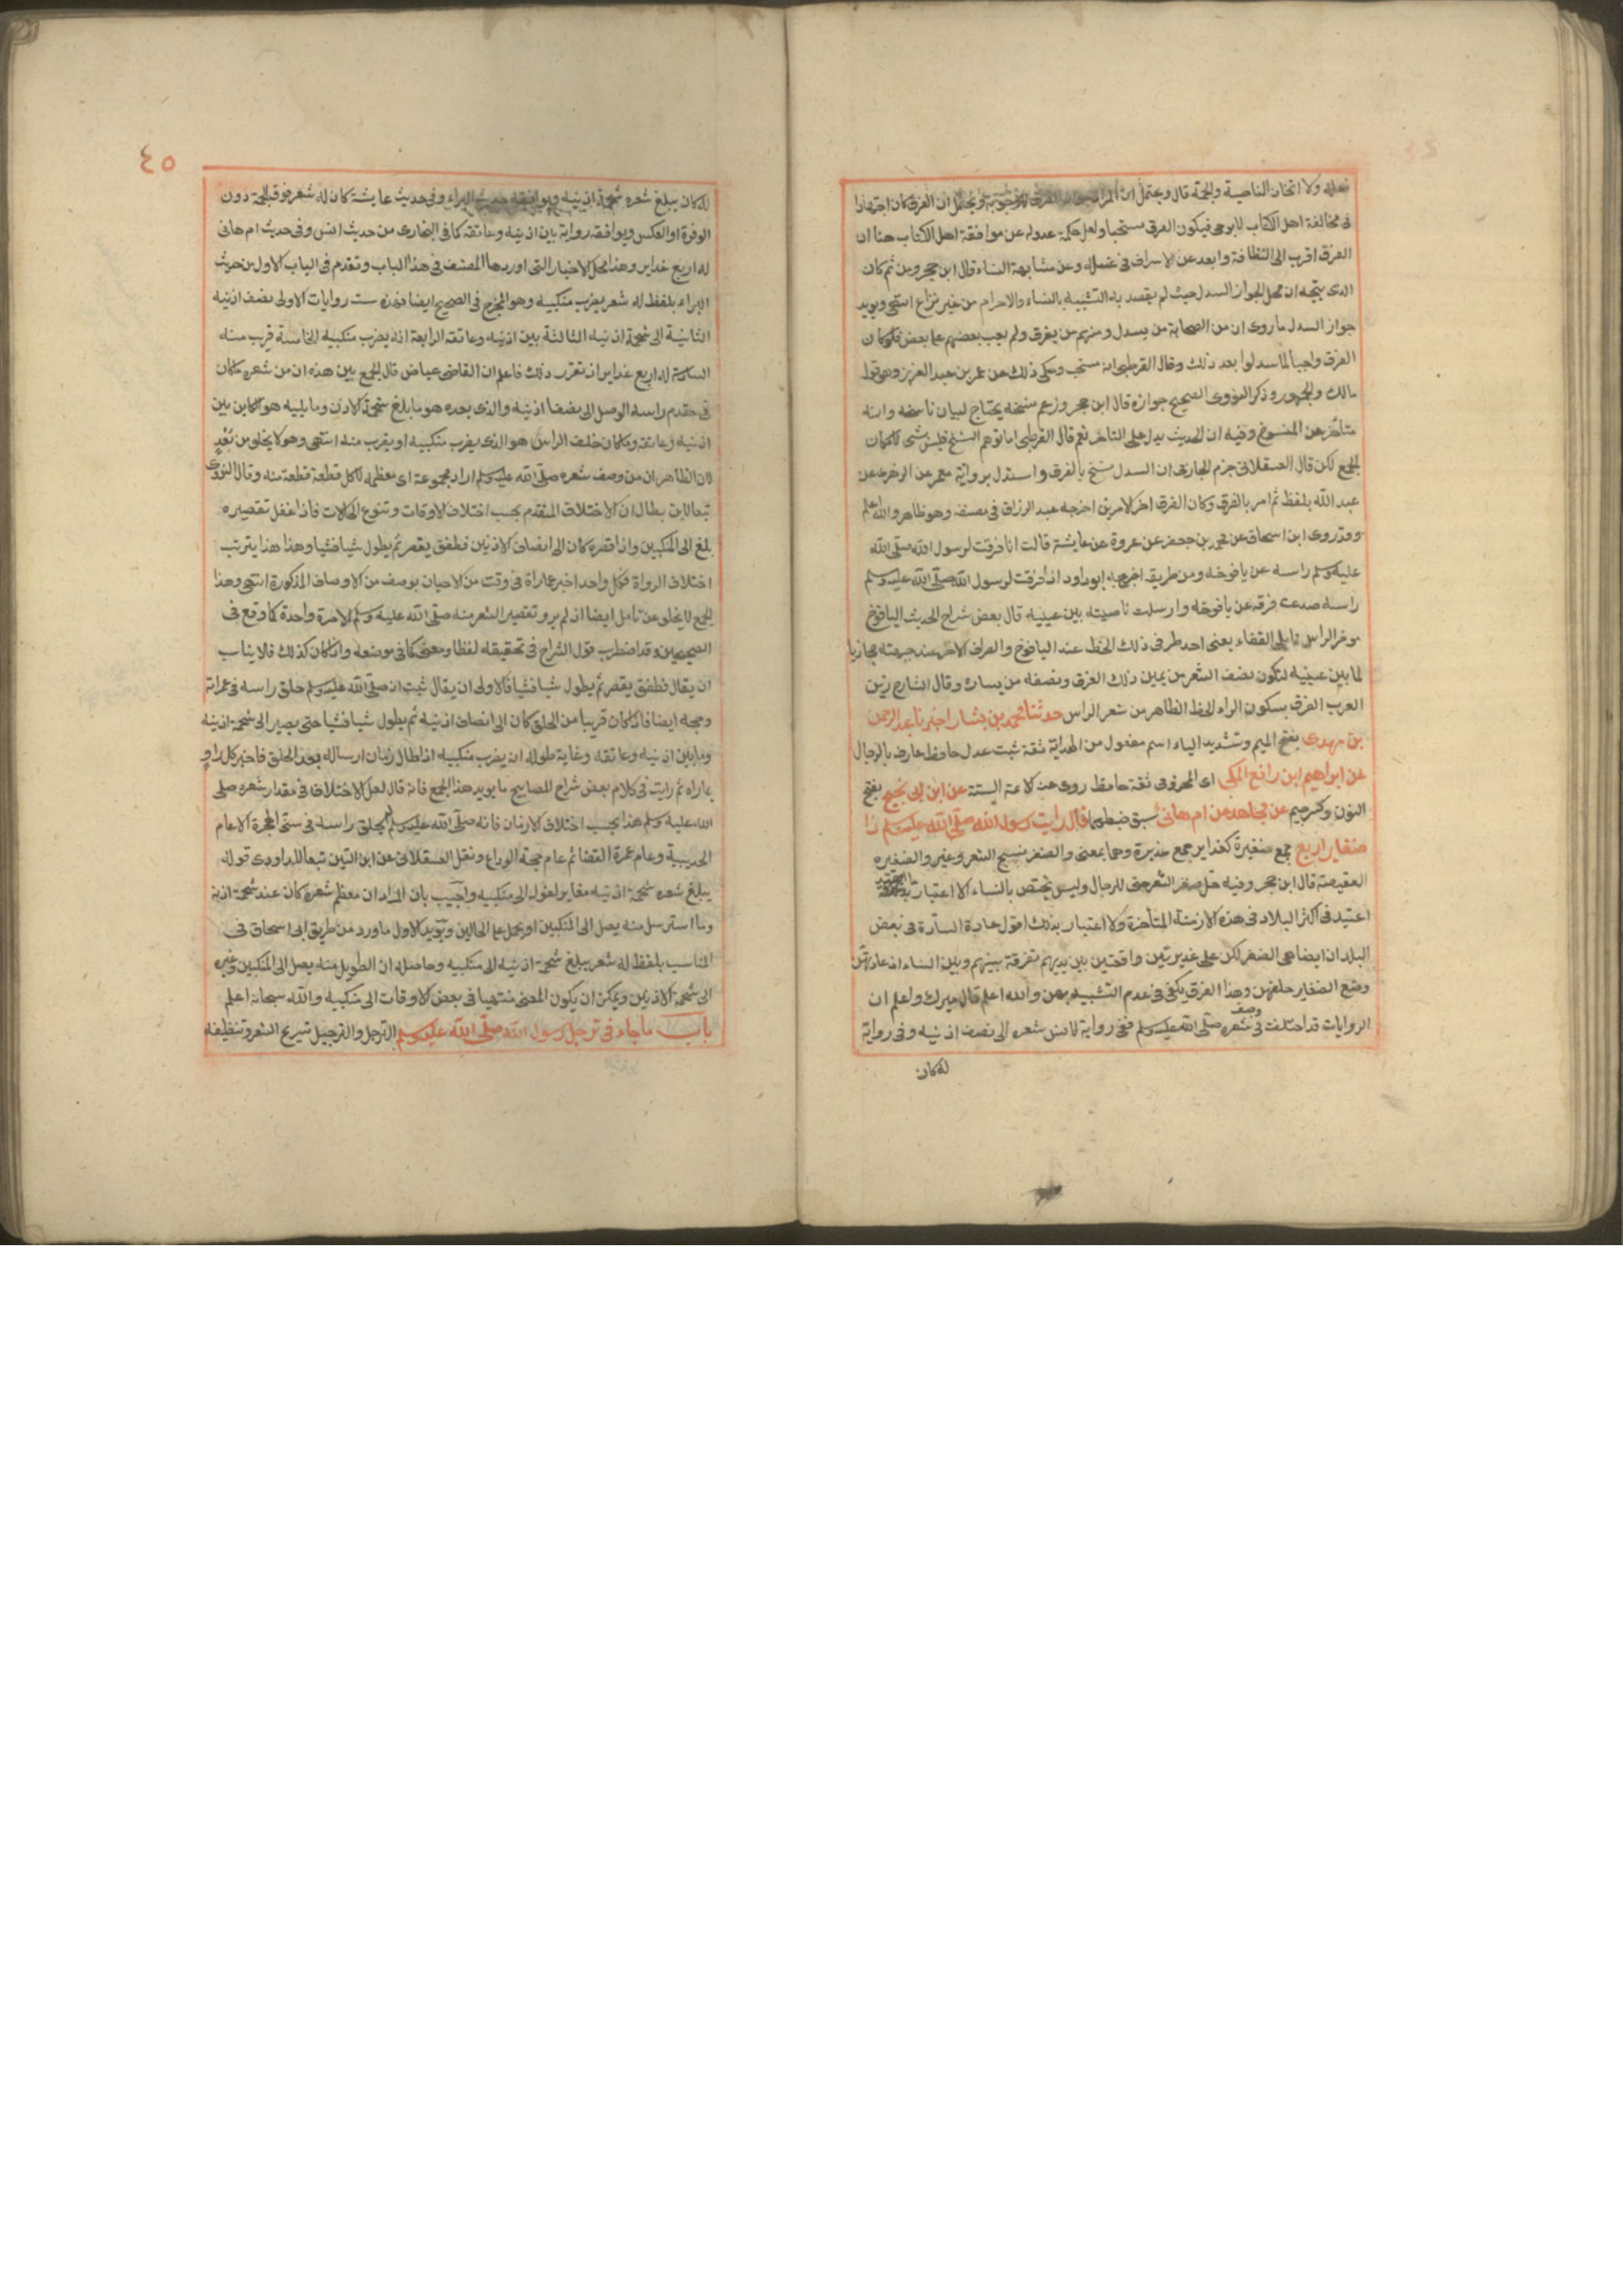 فعله ولا اتخاذ الناصية والجمة قال ويحتمل ان المراد الفرق لا وجوبه ويحتمل ان الفرق كان اجتهادا
في مخالفة اهل الكتاب لا بوحي فيكون الفرق مستحبا ولعل حكمة عدوله عن موافقة اهل الكتاب هنا ان
الفرق اقرب الى النظافة وابعد عن الاسراف في غسله وعن مشابهة النساء قال ابن حجر ومن ثم كان
الذى يتجه ان محل جواز السدل حيث لم يقصد به التشبيه بالنساء والا حرام من غير نزاع انتهى ويويد
جواز السدل ما روى ان من الصحابة من يسدل ومنهم من يفرق ولم يعب بعضهم على بعض فلو كان
الفرق واجبا لما سدلوا بعد ذلك وقال القرطبي انه مستحب وحكى ذلك عن عمر بن عبد العزيز وهو قول
مالك والجمهور وذكر النووى الصحيح جوازه قال ابن حجر وزعم نسخه يحتاج لبيان ناسخه وانه
متاخر عن المنسوخ وفيه ان الحديث يدل على التاخر نعم قال القرطبي اما توهم النسخ فليس بشى لامكان
الجمع لكن قال العسقلانى جزم الحازمى ان السدل نسخ بالفرق واستدل برواية معمر عن الزهرى عن
عبد الله بلفظ ثم امر بالفرق وكان الفرق اخر الامرين اخرجه عبد الرزاق فى مصنفه وهو ظاهر والله اعلم
وقد روى ابن اسحاق عن محمد بن جعفر عن عروة عن عايشة قالت انا فرقت لرسول الله صلى الله
عليه وسلم راسه عن يافوخه ومن طريقه اخرجه ابو داود اذا فرقت لرسول الله صلى الله عليه وسلم
راسه صدعت فرقه عن يافوخه وارسلت ناصيته بين عينيه قال بعض شراح الحديث اليافوخ
موخر الراس مما يلى القفاء يعنى احد طرفى ذلك الخط عند اليافوخ والطرف الاخر عند جبهته محاذيا
لما بين عينيه لتكون نصف الشعر من يمين ذلك الفرق ونصفه من يساره وقال الشارح زين
العرب الفرق بسكون الراء الخط الظاهر من شعر الراس حدثنا محمد بن بشار اخبرنا عبد الرحمن
بن مهدى بفتح الميم وتشديد الياء اسم مفعول من الهداية ثقة ثبت عدل حافظ عارف بالرجال
عن ابراهيم ابن رافع المكى اى المخزومى ثقة حافظ روى عنه الائمة الستة عن ابن ابى نجيح بفتح
النون وكسر جيم عن مجاهد عن ام هانئ سبق ضبطهما قال رايت رسول الله صلى الله عليه وسلم ذا
ضفاير اربع جمع ضفيرة كغداير جمع غديرة وهما بمعنى والضفر نسج الشعر وغيره والضفيره
العقيصة قال ابن حجر وفيه حل ضفر الشعر حتى للرجال وليس يختص بالنساء الا اعتبار
اعتيد فى اكثر البلاد فى هذه الازمنة المتاخرة ولا اعتبار بذلك اقول عادة السادة فى بعض
البلدان ايضا هى الضفر لكن على غديرتين واقعتين بين يديهم تفرقة بينهم وبين النساء اذ عادتهن
وضع الضفاير خلفهن وهذا الفرق يكفى فى عدم التشبيه بهن والله اعلم قال ميرك واعلم ان
الروايات قد اختلفت فى وصف شعره صلى الله عليه وسلم ففى رواية لانس شعره الى نصف اذنيه وفى رواية
له كان
٤٥
له كان يبلغ شعره شحمة اذنيه ويوافقه حديث البراء وفى حديث عايشة كان له شعر فوق الجمة دون
الوفرة او العكس ويوافقه رواية بين اذنيه وعاتقه كما فى البخارى من حديث انس وفى حديث ام هانى
له اربع غداير وهذا محل الاخبار التى اوردها المصنف فى هذا الباب وتقدم فى الباب الاول من حديث
البراء بلفظ له شعر يضرب منكبيه وهو المخرج فى الصحيح ايضا فهذه ست روايات الاولى نصف اذنيه
الثانية الى شحمة اذنيه الثالثة بين اذنيه وعاتقه الرابعة انه يضرب منكبيه الخامسة قريب منه
السادسة له اربع غداير اذ تقرر ذلك فاعلم ان القاضى عياض قال الجمع بين هذه ان من شعره ما كان
فى مقدم راسه الوصل الى نصف اذنيه والذى بعده هو ما بلغ شحمة الاذن وما يليه هو الكاين بين
اذنيه وعاتقه وما كان خلف الراس هو الذى يضرب منكبيه او يقرب منه انتهى وهو لا يخلو من بعد
لان الظاهر ان من وصف شعره صلى الله عليه وسلم اراد مجموعه او معظمه لا كل قطعة قطعة منه وقال النووى
تبعا لابن بطال ان الاختلاف المتقدم بحسب اختلاف الاوقات وتنوع الحالات فاذا غفل تقصيره
بلغ الى المنكبين واذا قصره كان الى انصاف الاذنين فطفق يقصر ثم يطول شيا فشيا وهذا هذا يترتب
اختلاف الرواة فكل واحد اخبر عما راه فى وقت من الاحيان بوصف من الاوصاف المذكورة انتهى وهذا
الجمع لا يخلو عن تامل ايضا اذ لم يرو تقصير الشعر منه صلى الله عليه وسلم الا مرة واحدة كما وقع فى
الصحيحين وقد اضطرب قول الشراح فى تحقيقه لفظا ومعنى كما فى موضعه واذا كان كذلك فلا يناسب
ان يقال فطفق يقصر ثم يطول شيا فشيا فالاولى ان يقال ثبت انه صلى الله عليه وسلم حلق راسه فى عمراته
وحجه ايضا فاذا كان قريبا من الحلق كان الى انصاف اذنيه ثم يطول شيا فشيا حتى يصير الى شحمة اذنيه
وما بين اذنيه وعاتقه وغاية طوله ان يضرب منكبيه اذا طال زمان ارساله بعد الحلق فاخبر كل راو
بما راه ثم رايت فى كلام بعض شراح المصابيح ما يويد هذا الجمع فانه قال لعل الاختلاف فى مقدار شعره صلى
الله عليه وسلم هذا بحسب اختلاف الازمان فانه صلى الله عليه وسلم لم يحلق راسه فى سنى الهجرة الا عام
الحديبية وعام عمرة القضا ثم عام حجة الوداع ونقل العسقلانى عن ابن التين تبعا للداودى قوله
يبلغ شعره شحمة اذنيه مغاير لقوله الى منكبيه واجيب بان المراد ان معظم شعره كان عند شحمة اذنه
وما استرسل منه يصل الى المنكبين او يحمل على الحالين ويويد الاول ما ورد من طريق ابى اسحاق فى
المناسب بلفظ له شعر يبلغ شحمة اذنيه الى منكبيه وحاصله ان الطويل منه يصل الى المنكبين وغيره
الى شحمة الاذنين ويمكن ان يكون المعنى منتهيا فى بعض الاوقات الى منكبيه والله سبحانه اعلم
باب ما جاء فى ترجل رسول الله صلى الله عليه وسلم الترجل والترجيل تسريح الشعر وتنظيفه